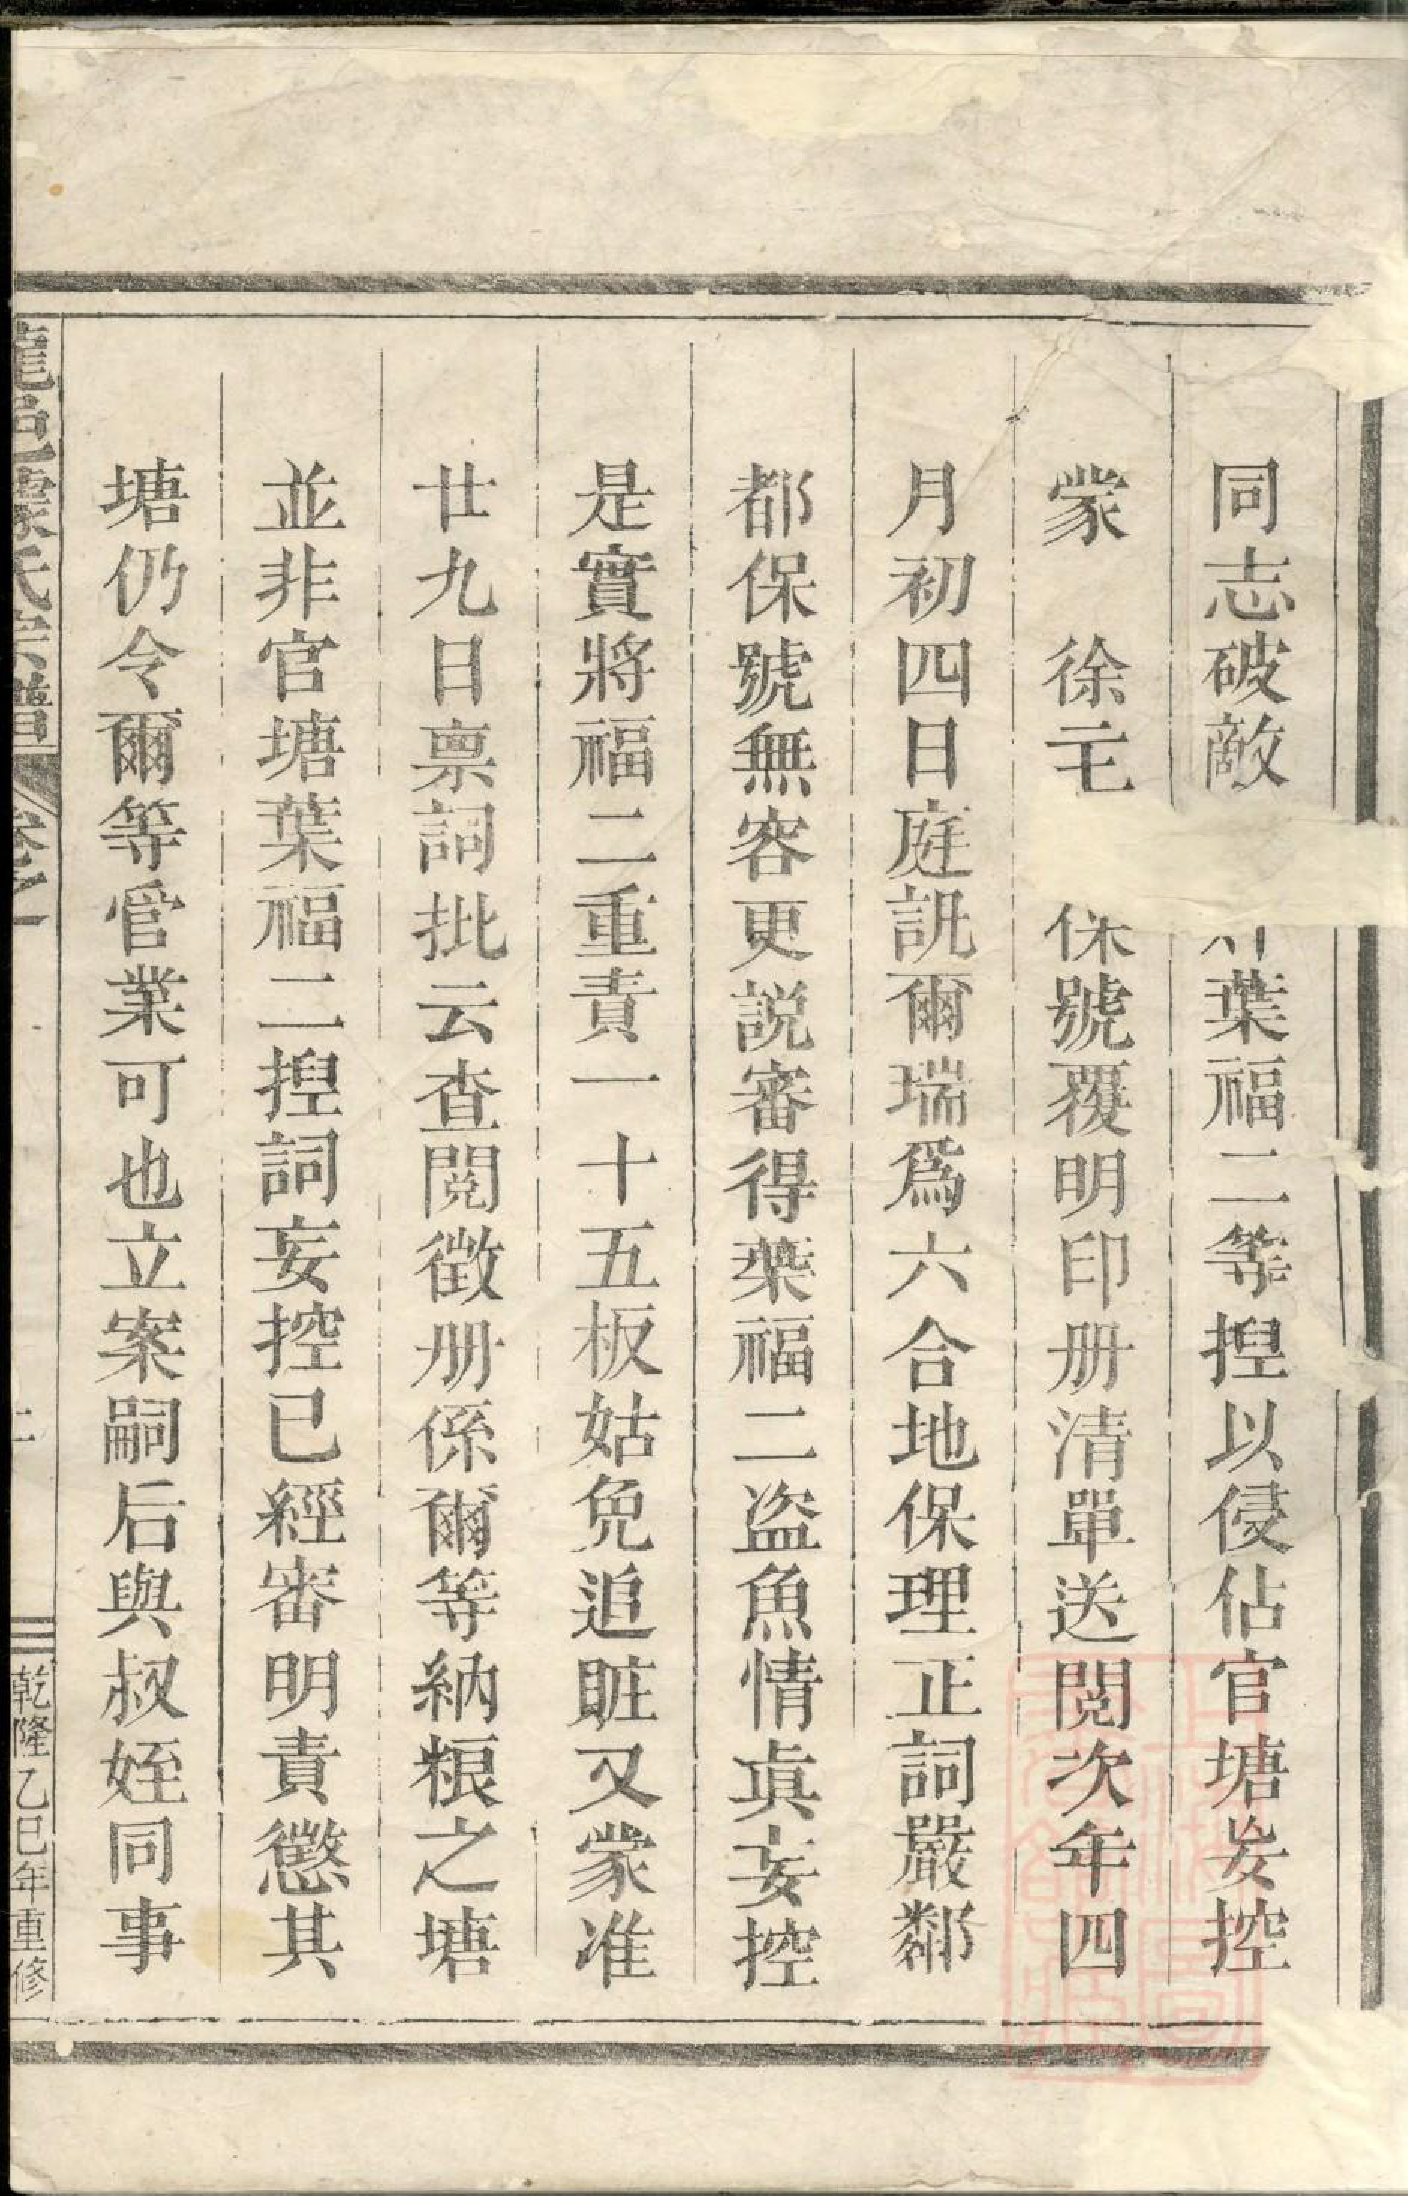 同志破敵葉福二等揑以侵佔官塘妄控
蒙　徐保號覆明印册清單送閱次年四
月初四日庭訊爾瑞爲六合地保理正詞嚴鄰
都保號無容更説審得葉福二盗魚情真妄控
是實將福二重責一十五板姑免追賍又蒙准
廿九日禀詞批云查閱徵册係爾等納粮之塘
並非官塘葉福二揑詞妄控已經審明責懲其
塘仍令爾等管業可也立案嗣后與叔姪同事
氏宗譜
卷之一
二
乾隆乙巳年重修